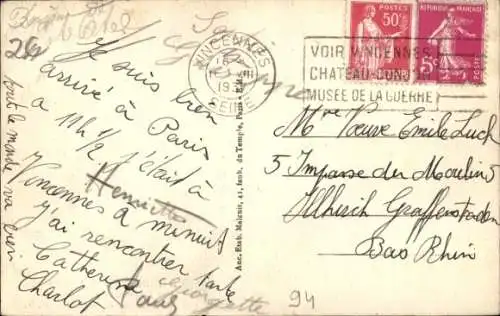 Je suis bien
arrivé à Paris
à 11h 1/2 j'était à
Vincennes à minuit
j'ai rencontrer tante
Catherine
Charlot Paul
Georgette
Henriette
tout le monde va bien
VINCENNES
SEINE
VOIR VINCENNES
CHATEAU-DONJON
MUSEE DE LA GUERRE
POSTES
50c
REPUBLIQUE FRANÇAISE
5c
Anc. Etab. Malcuit, 41, faub. du Temple, Paris
Mme Veuve Emile Luck
5 Impasse du Moulin 5
Illkirch Graffenstaden
Bas Rhin
94